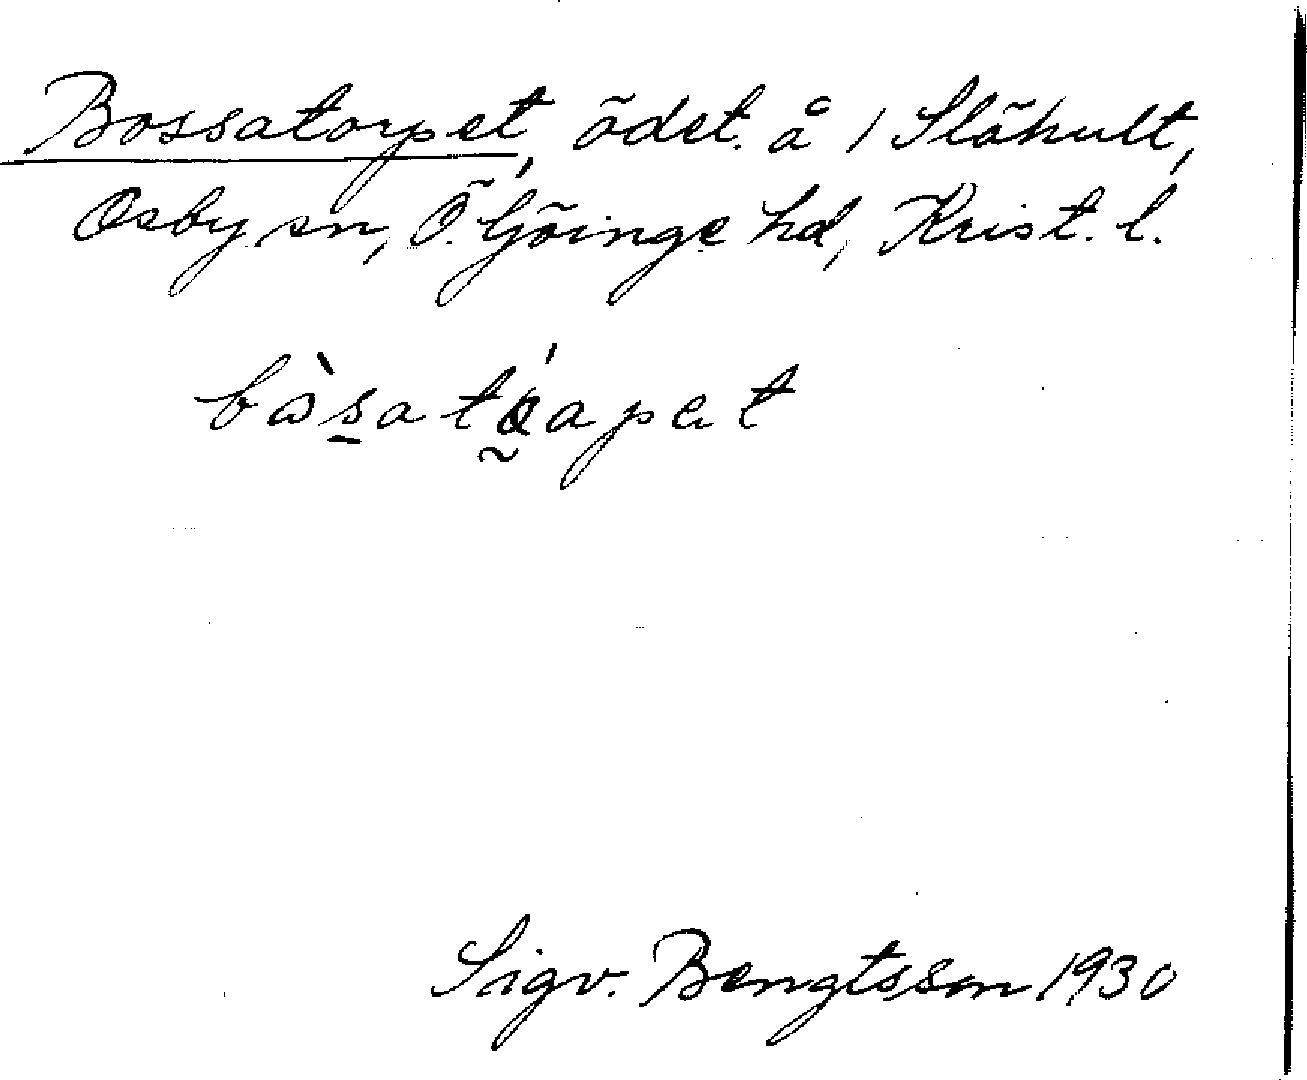 Bossatorpet, ödet. å 1 Slähult,
Osby sn, Ö. Göinge hd, Krist. l.
Sigv. Bengtsson 1930